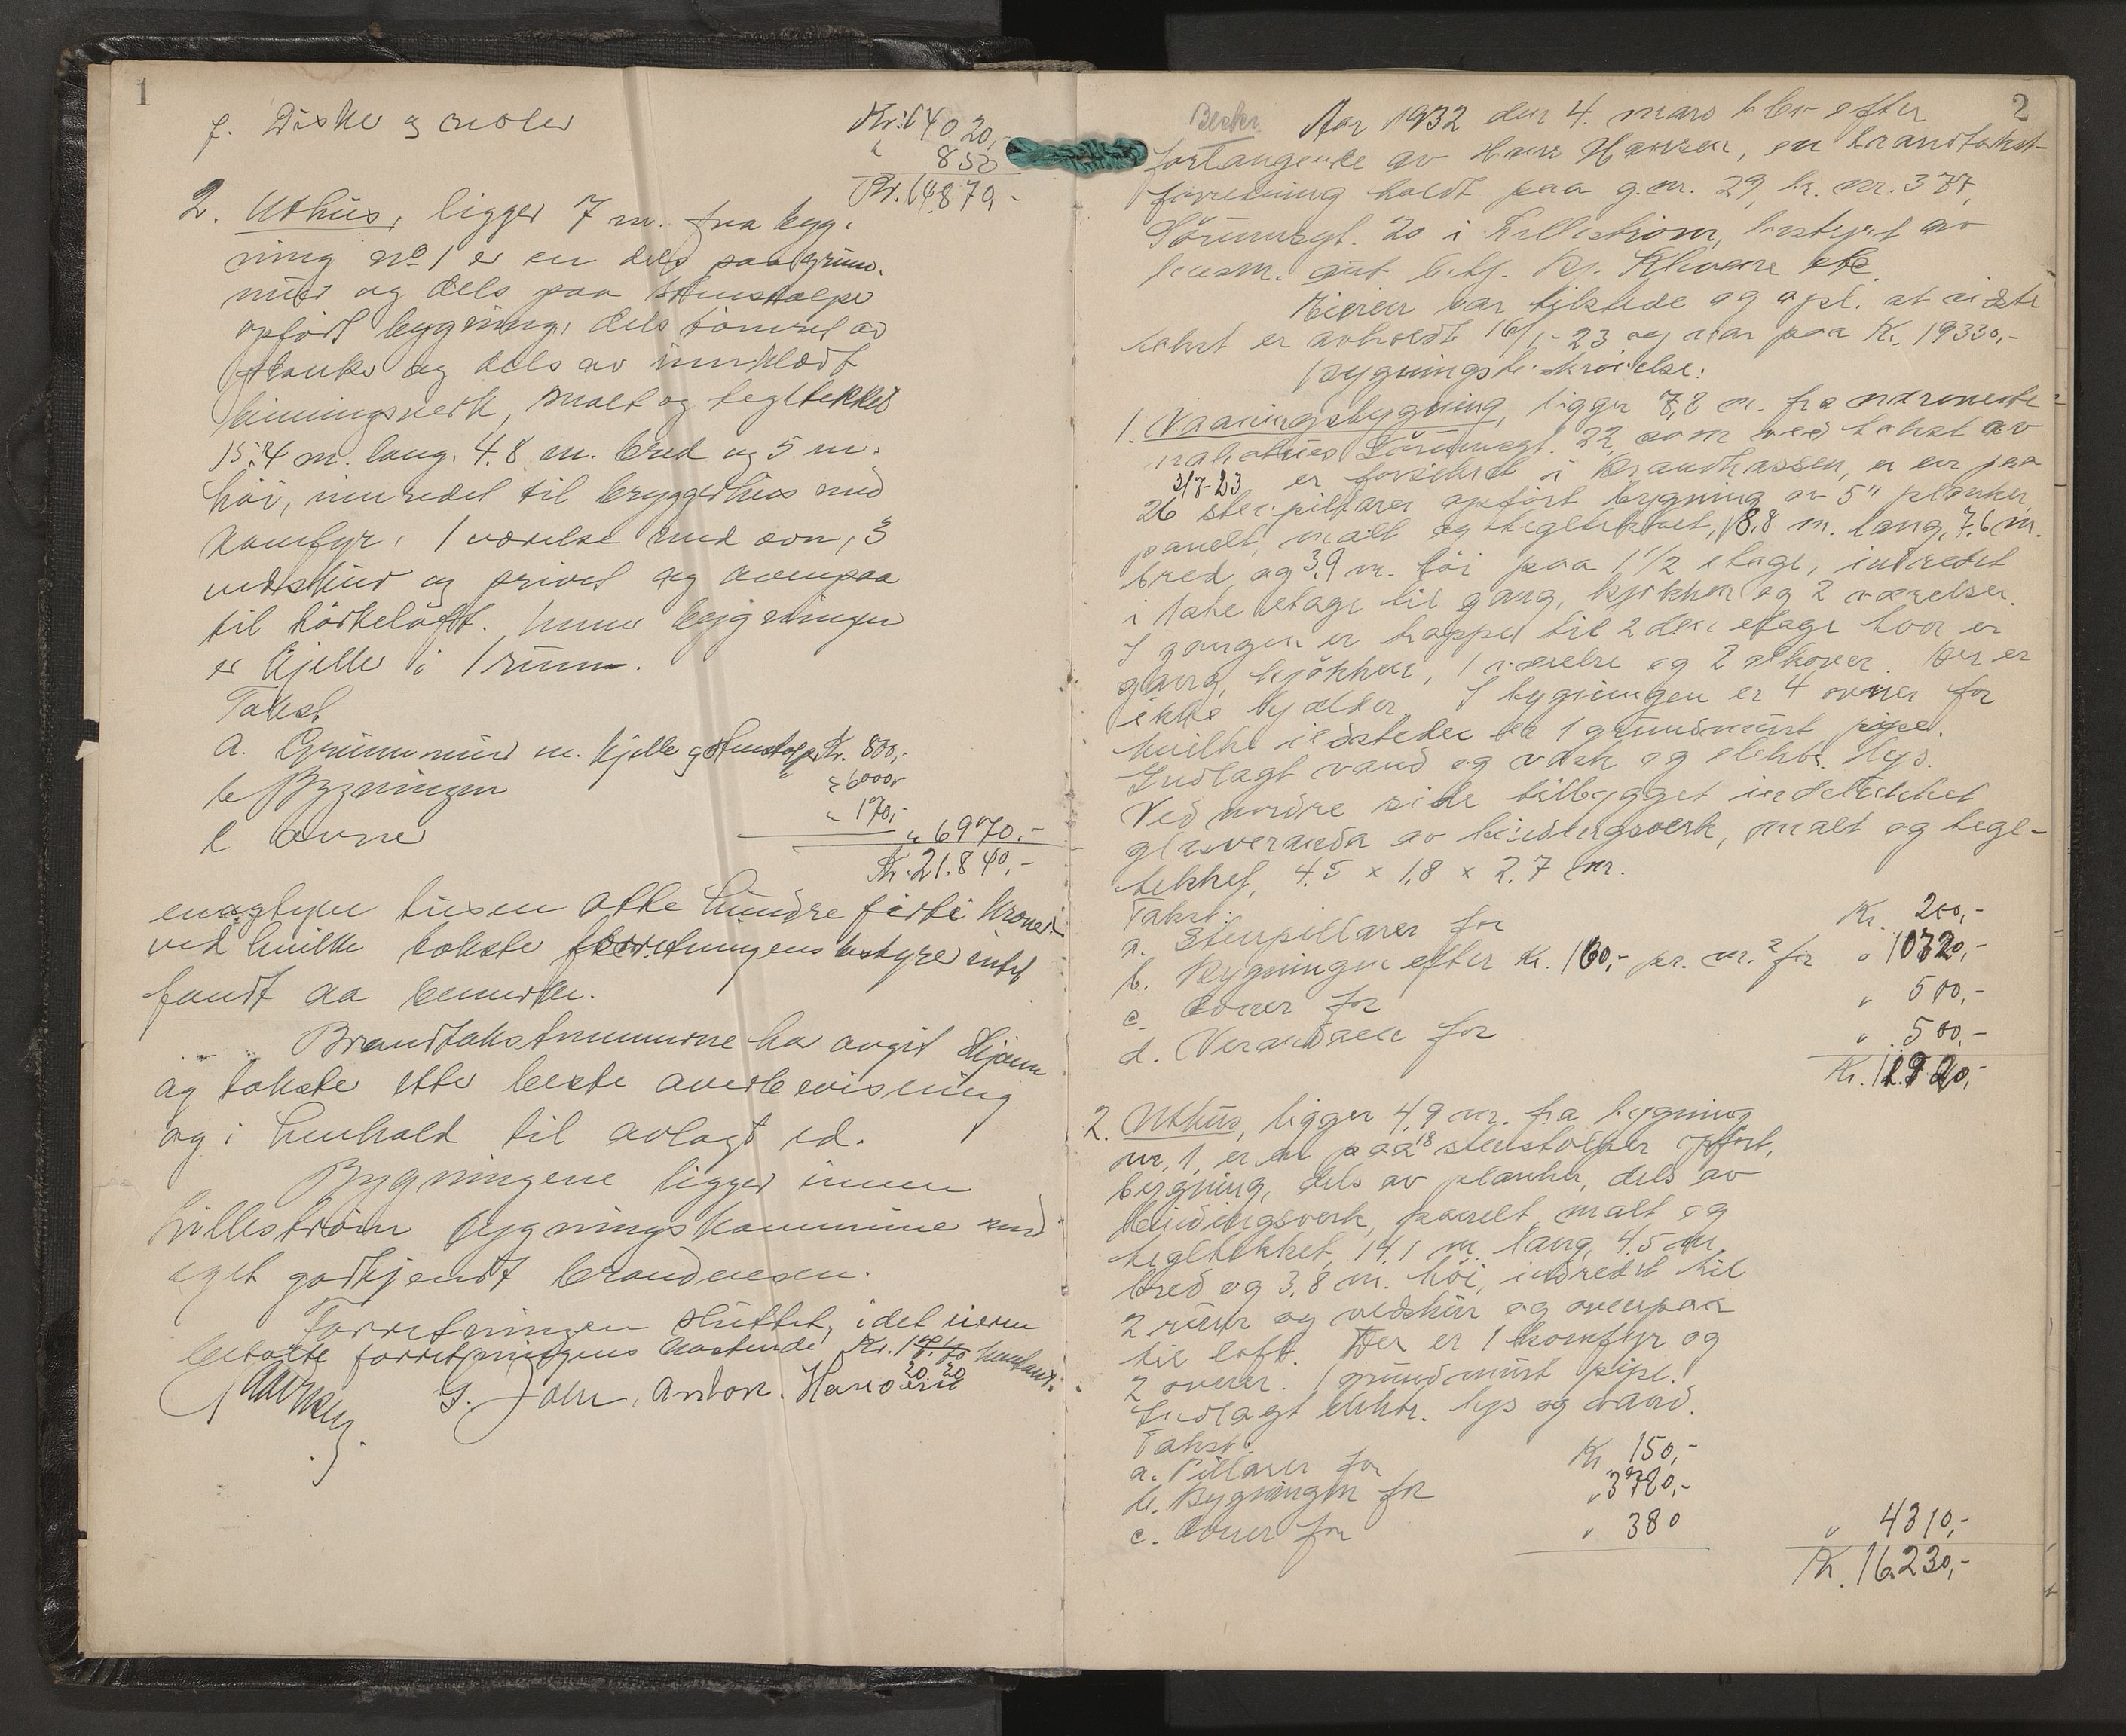 1
f. Diske og reoler
Kr. 14020,-
" 850
Kr. 14.870,-
2. Uthus, ligger 7 m. fra byg-
ning no 1 er en dels paa grunn-
mur og dels paa stenstolper
opført bygning, dels tømret av
planke og dels av innklædt
binningsverk, malt og tegltekket
15.4 m. lang. 4.8 m. bred og 5 m.
høi, innredet til bryggerhus med
komfyr, 1 værelse med ovn, 3
vedskur og privet og ovenpaa
til tørkeloft. Unner bygningen
er kjeller i 1 rum.
Takst
a. Grunnmur m. kjeller og stenstolper Kr. 800,-
b Bygningen " 6000,-
c ovne " 170,-
" 6970,-
Kr. 21.840,-
enogtyve tusen otte hundre førti kroner
ved hvilke takster forretningens bestyrer intet
fandt aa bemerke.
Brandtakstmennene har avgit skjønn
og takster etter beste overbevisning
og i henhold til avlagt ed.
Bygningene ligger innen
Lillestrøm bygningskommune med
eget godkjendt brandvesen.
Forretningen sluttet, idet eieren
betalte forretningens kostende Kr. 19.40 kontant.
20 20
G. Joen. Anton. Hansen
2
Beskr. Aar 1932 den 4. mars blev efter
forlangende av Hans Hansen, en brandtakst-
forretning holdt paa g.nr. 29, br. nr. 377,
Sørumsgt. 20 i Lillestrøm, bestyrt av
lensm. aut. betj. Kj.
Eieren var tilstede og opl. at sidste
takst er avholdt 16/1-23 og var paa Kr. 19330,-
Bygningsbeskrivelse:
1. Vaaningsbygning, ligger 7,8 m. fra nærmeste
nabohus Sørumsgt. 22, som ved takst av
3/7-23 er forsikret i Brandkassen, er en paa
26 stenpillarer opført bygning av 5" planker,
panelt, malt og tegltekket, 8,8 m. lang, 7.6 m.
bred og 3,9 m. høi paa 1 1/2 etage, indredet
i 1ste etage til gang, kjøkken og 2 værelser.
I gangen er trappe til 2den etage hvor er
gang, kjøkken, 1 værelse og 2 alkover. Der er
ikke kjælder. I bygningen er 4 ovner for
hvilke ildsteder er 1 grundmurt pipe.
Indlagt vand og vask og elektr. lys.
Ved nordre side tilbygget indelukket
glasveranda av bindingsverk, malt og tegl-
tekket, 4.5 x 1,8 x 2.7 m.
Takst:
a. Stenpillarer for Kr. 200,-
b. Bygningen efter Kr. 160,- pr. m.2 for " 10720,-
c. Ovner for " 500,-
d. Verandaen for " 500,-
Kr. 11.920,-
2. Uthus, ligger 4,9 m. fra bygning
nr. 1, er en paa 18 stenstolper opført,
bygning, dels av planker, dels av
bindingsverk, panelt, malt og
tegltekket, 14,1 m. lang, 4.5 m.
bred og 3,8 m. høi, indredet til
2 rum og vedskur og ovenpaa
til loft. Der er 1 komfyr og
2 ovner. 1 grundmurt pipe.
Indlagt elektr. lys og vand.
Takst:
a. Pillarer for Kr. 150,-
b. Bygningen for " 3780,-
c. Ovner for " 380
" 4310,-
Kr. 16.230,-